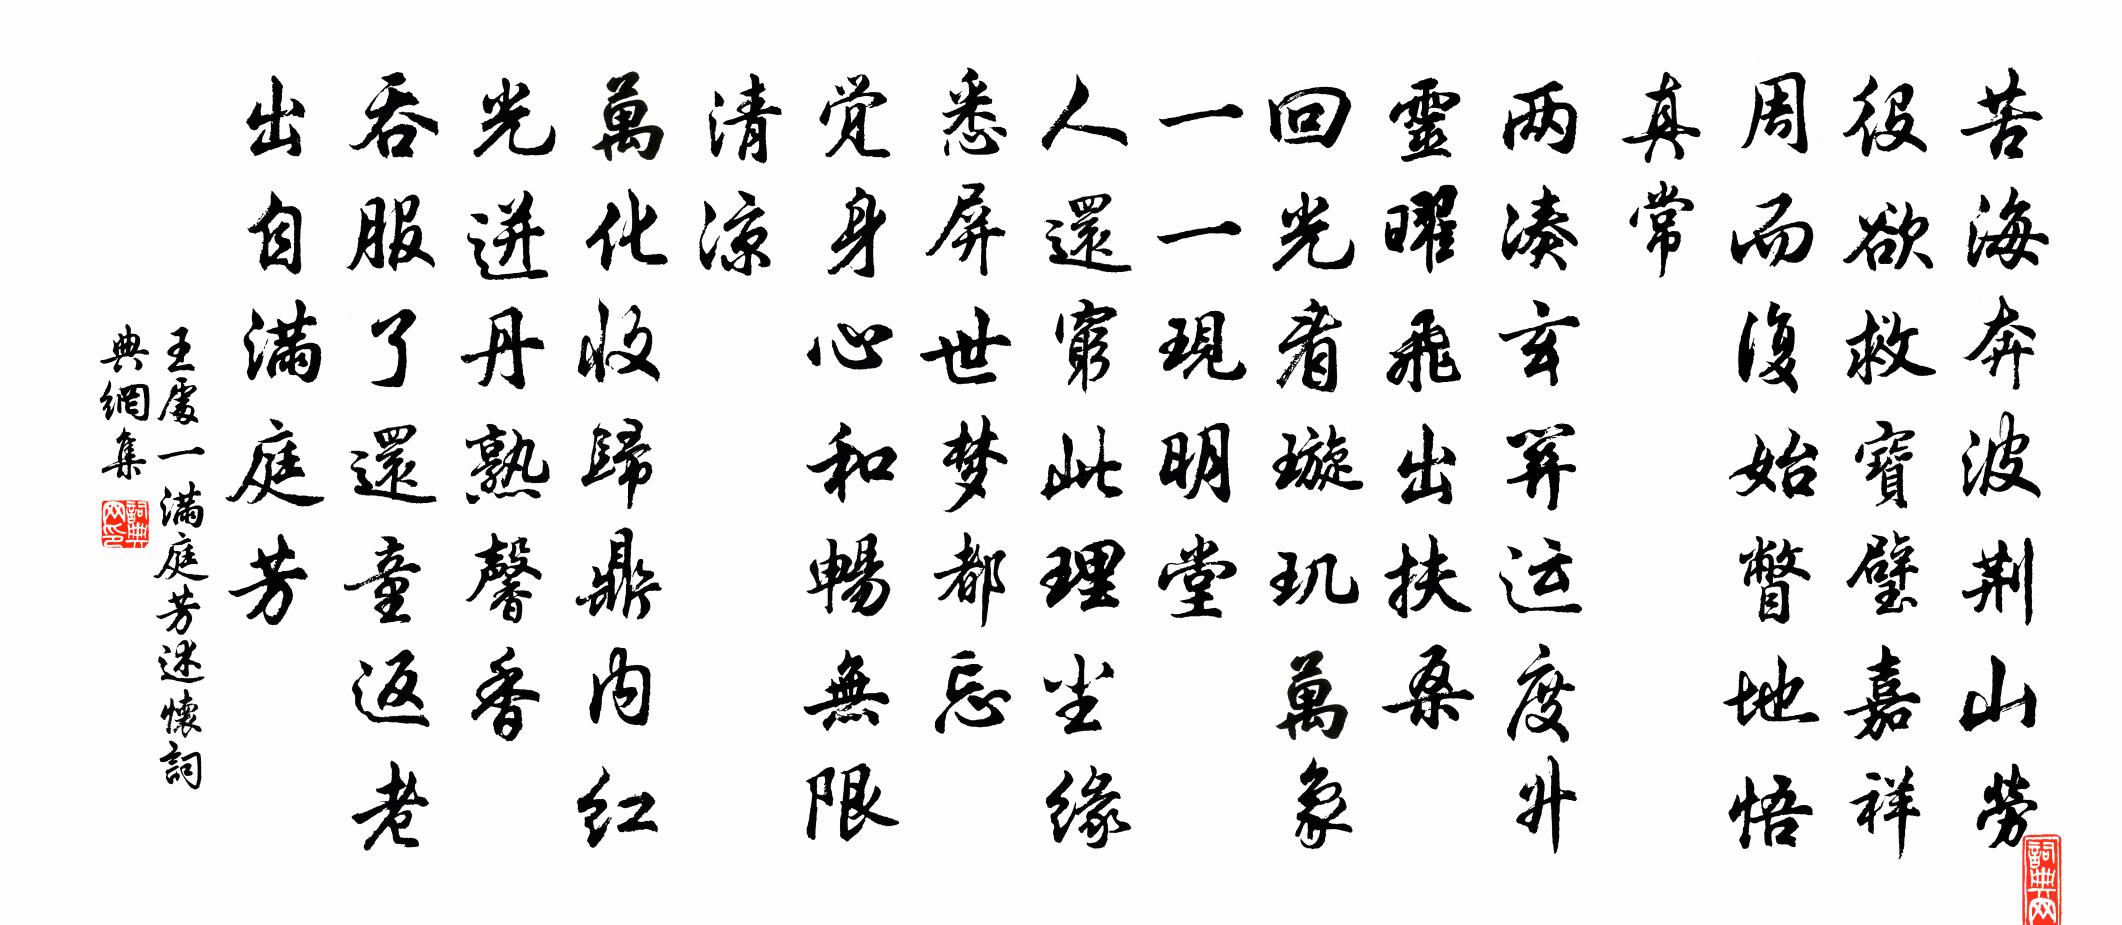 苦海奔波荆山勞
役欲救寶璧嘉祥
周而復始瞥地悟
真常
两凑玄關运度升
靈曜飛出扶桑
回光看璇玑萬象
一一現明堂
人還窮此理尘缘
悉屏世梦都忘
觉身心和暢無限
清凉
萬化收歸鼎内红
光迸丹熟馨香
吞服了還童返老
出自滿庭芳
王處一滿庭芳述懷詞
典網集
詞典网印
詞典网